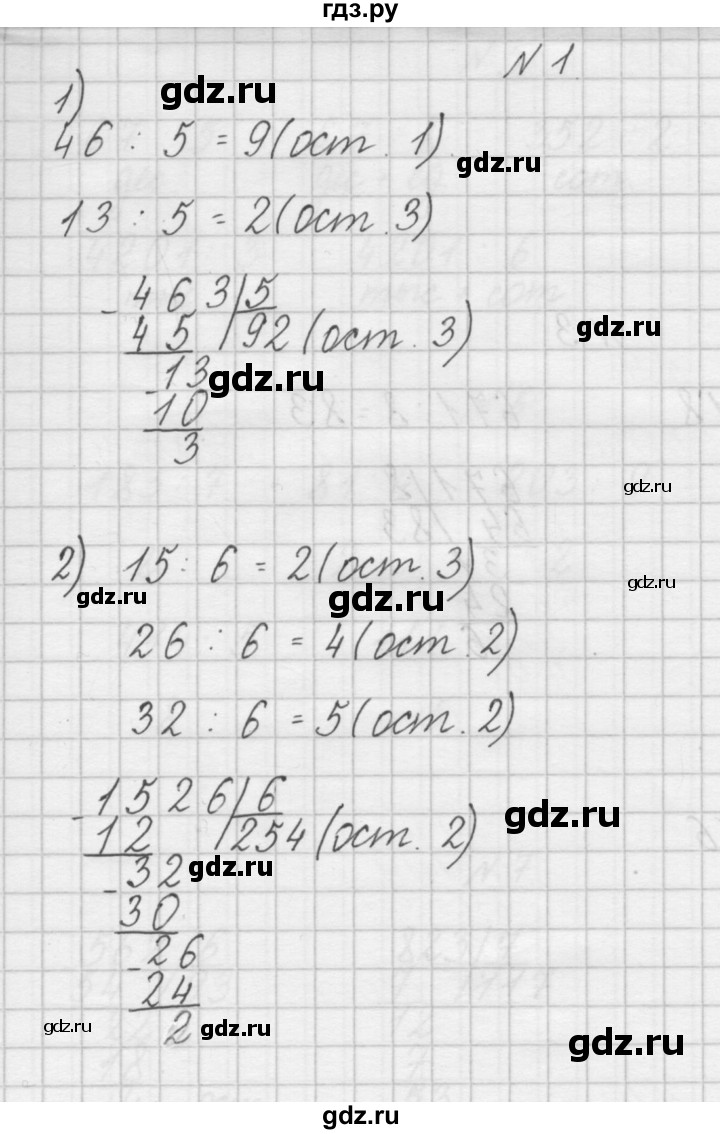 гдз.ру
N 1
1)
gdz.ru
46 : 5 = 9 (ост. 1)
gdz.ru
13 : 5 = 2 (ост. 3)
- 463 | 5
45 | 92 (ост. 3)
gdz.ru
- 13
gdz.ru
10
3
gdz.ru
2) 15 : 6 = 2 (ост. 3)
gdz.ru
gdz.ru
gdz.ru
26 : 6 = 4 (ост. 2)
32 : 6 = 5 (ост. 2)
- 1526 | 6
gdz.ru
12 | 254 (ост. 2)
- 32
gdz.ru
30
- 26
24
2
gdz.ru
gdz.ru
gdz.ru
gdz.ru